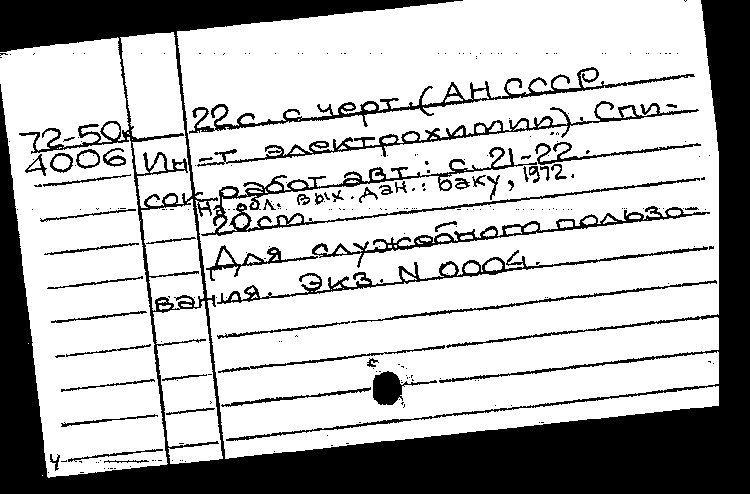 22с. с черт. (АН СССР.
72-50к
4006 Ин-т электрохимии). Спи-
сок работ авт.: с. 21-22.
На обл. вых. дан.: Баку, 1972.
20 см.
Для служебного пользо-
вания. Экз. N 0004.
4